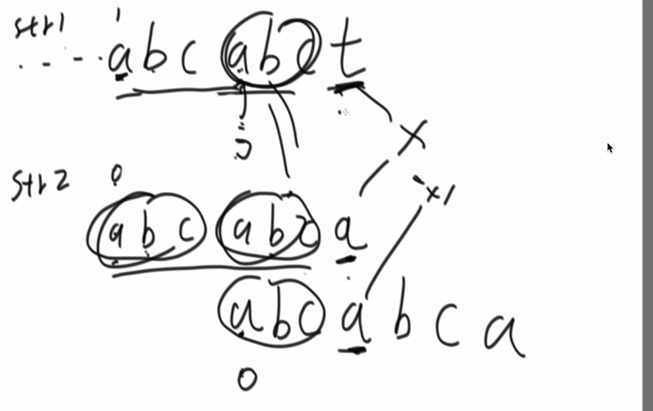 str1
i
.... abc abc t
j
x
str2 0
abc abc a
x1
abc abca
0